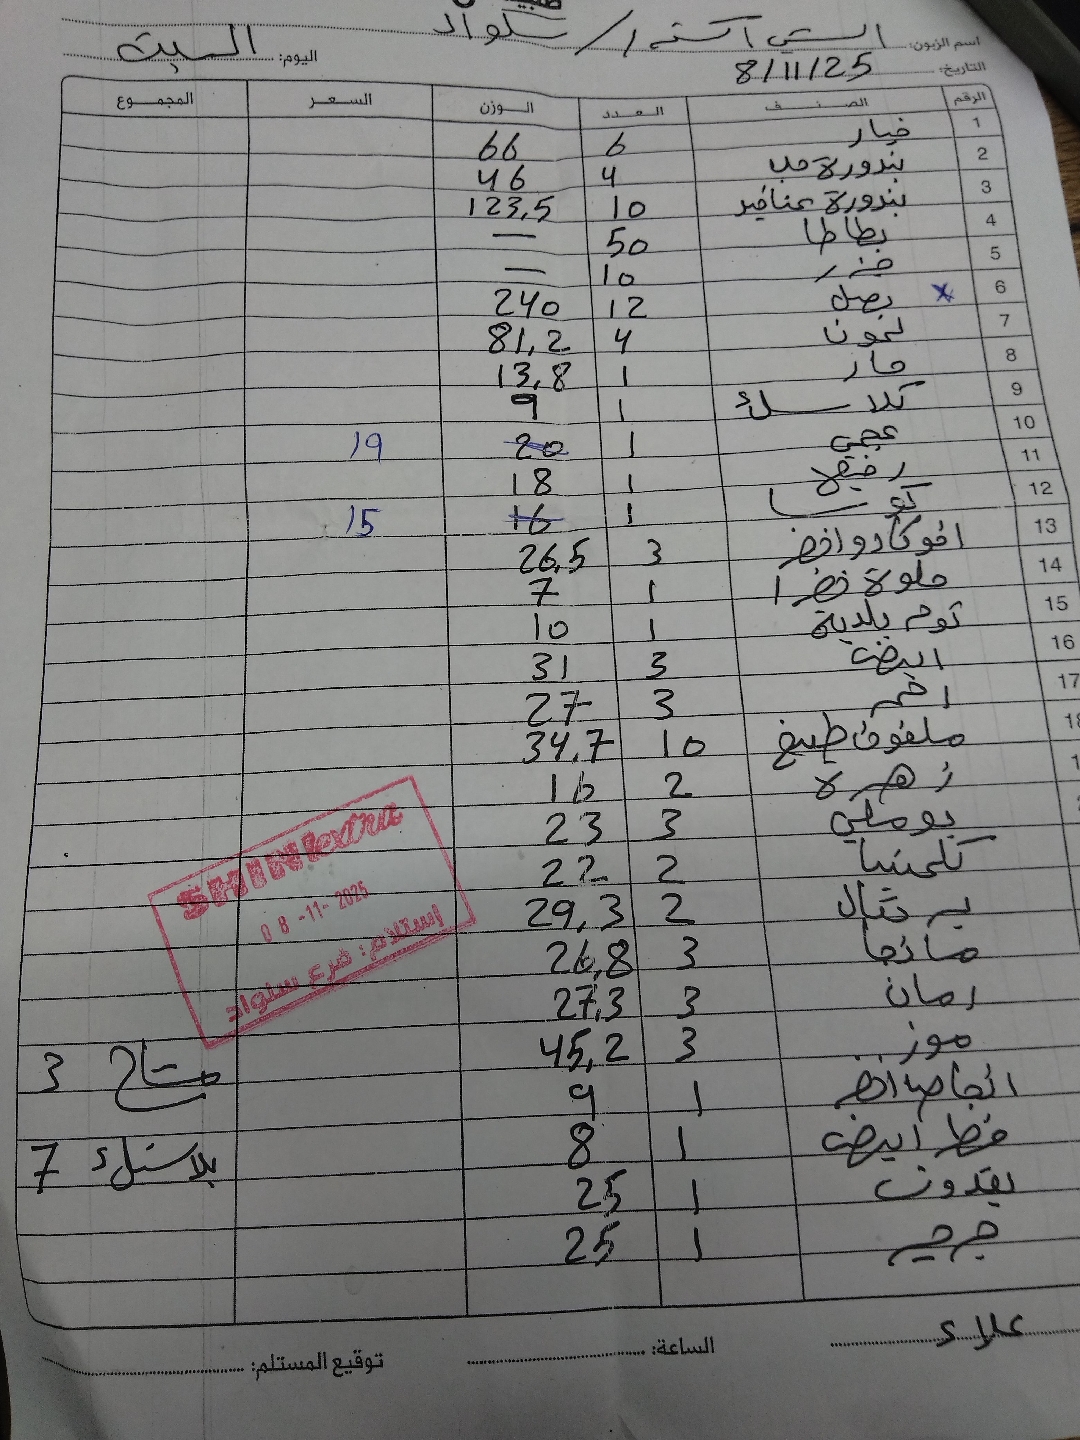 اسم الزبون: الشني اكسترا / سلواد اليوم: السبت
التاريخ: 8/11/25
الرقم الصنف العدد الوزن السعر المجموع
1 خيار 6 66
2 بندورة حب 4 46
3 بندورة عناقيد 10 123,5
4 بطاطا 50 —
5 جزر 10 —
6 x بصل 12 240
7 لمون 4 81,2
8 حار 1 13,8
9 كلاسك 1 9
10 عجمي 1 20 19
11 رفيع 1 18
12 كوسا 1 16 15
13 افوكادو اخضر 3 26,5
14 حلوة خضرا 1 7
15 توم بلدية 1 10
16 ابيض 3 31
17 احمر 3 27
18 ملفوف طبيخ 10 34,7
زهرة 2 16
بوملي 3 23
كلمنتينا 2 22
برتقال 2 29,3
مانجا 3 26,8
رمان 3 27,3
موز 3 45,2
مشتاح 3
انجاص اخضر 1 9
فطر ابيض 1 8
بلاستك 7
بقدونس 1 25
جرجير 1 25
SHINI extra
08-11-2025
إستلام: فرع سلواد
علاء
الساعة: توقيع المستلم: